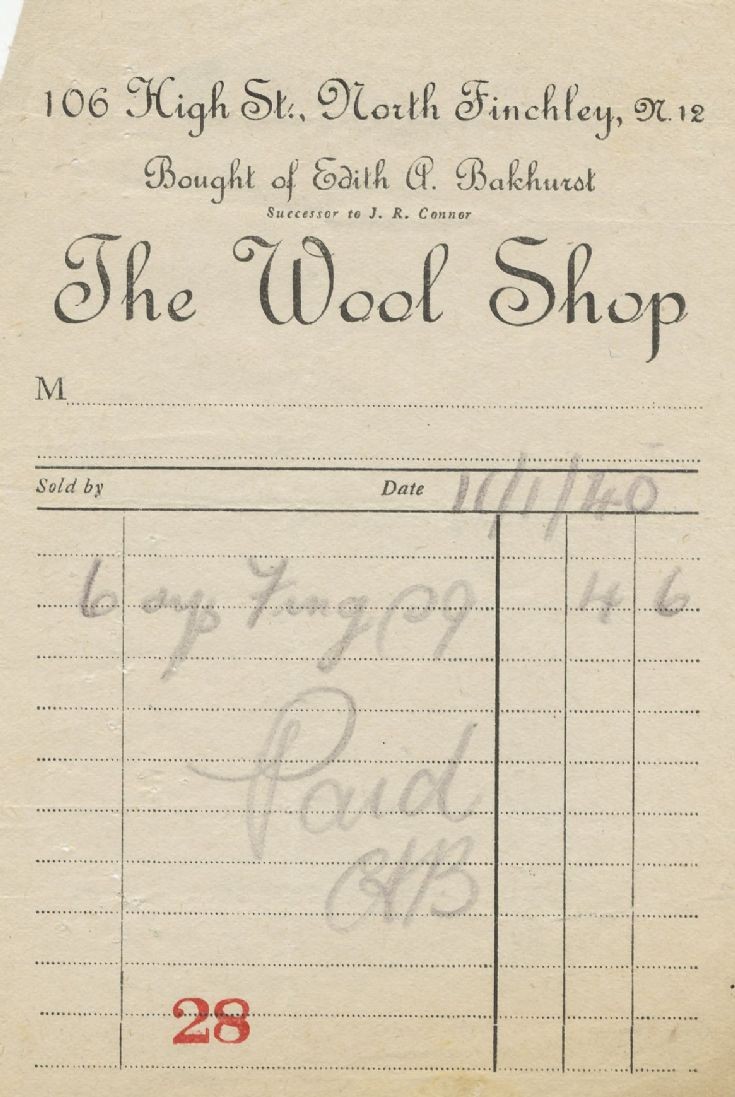 106 High St., North Finchley, N.12
Bought of Edith A. Bakhurst
Successor to J. R. Connor
The Wool Shop
M
Sold by Date 11/1/40
6 Fing @9 4 6
Paid
28